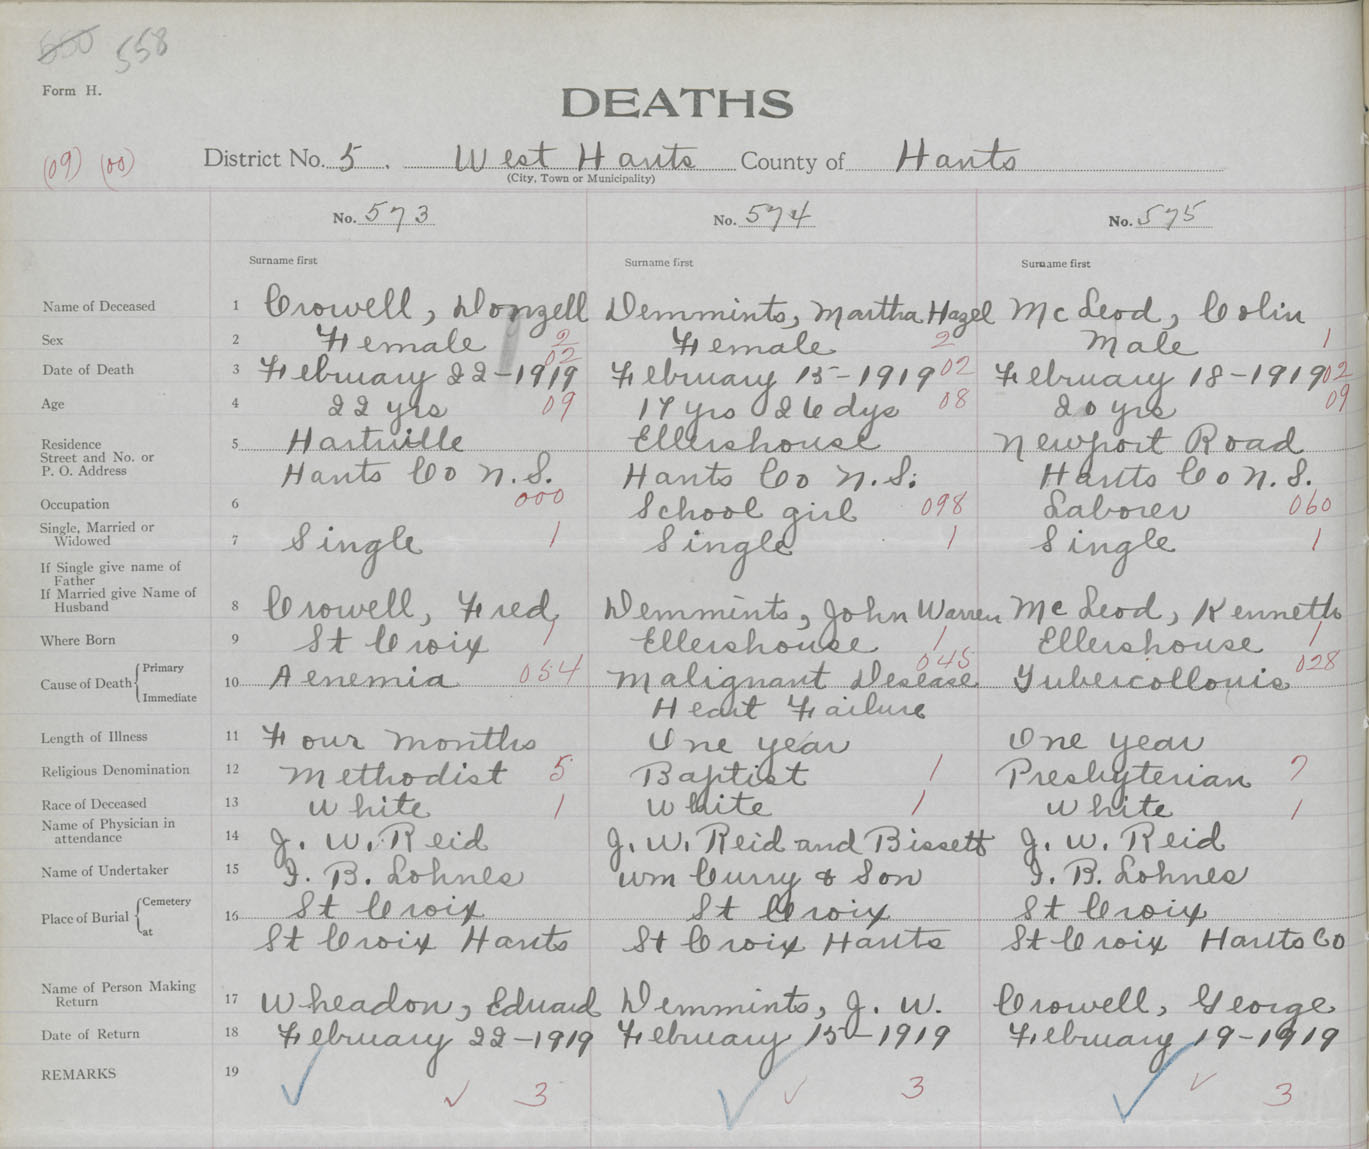 550 558
Form H.
DEATHS
(09) (00) District No. 5. West Hants County of Hants
(City, Town or Municipality)
No. 573 No. 574 No. 575
Surname first Surname first Surname first
Name of Deceased 1 Crowell, Donzell Demmints, Martha Hazel McLeod, Colin
Sex 2 Female 2 Female 2 Male 1
Date of Death 3 February 22-1919 02 February 15-1919 02 February 18-1919 02
Age 4 22 yrs 09 17 yrs 26 dys 08 20 yrs 09
Residence 5 Hartville Ellershouse Newport Road
Street and No. or
P. O. Address Hants Co N.S. Hants Co N.S. Hants Co N.S.
Occupation 6 000 School girl 098 Laborer 060
Single, Married or
Widowed 7 Single 1 Single 1 Single 1
If Single give name of
Father
If Married give Name of
Husband 8 Crowell, Fred Demmints, John Warren McLeod, Kenneth
Where Born 9 St Croix 1 Ellershouse 1 Ellershouse 1
Cause of Death { Primary
10 Aenemia 054 Malignant Desease 045 Tubercollouis 028
Immediate Heart Failure
Length of Illness 11 Four months One year One year
Religious Denomination 12 Methodist 5 Baptist 1 Presbyterian 7
Race of Deceased 13 White 1 White 1 White 1
Name of Physician in
attendance 14 J. W. Reid J. W. Reid and Bissett J. W. Reid
Name of Undertaker 15 I. B. Lohnes Wm Curry & Son I. B. Lohnes
Place of Burial { Cemetery 16 St Croix St Croix St Croix
at St Croix Hants St Croix Hants St Croix Hants Co
Name of Person Making
Return 17 Wheadon, Eduard Demmints, J. W. Crowell, George
Date of Return 18 February 22-1919 February 15-1919 February 19-1919
REMARKS 19 ✓ ✓ 3 ✓ ✓ 3 ✓ ✓ 3